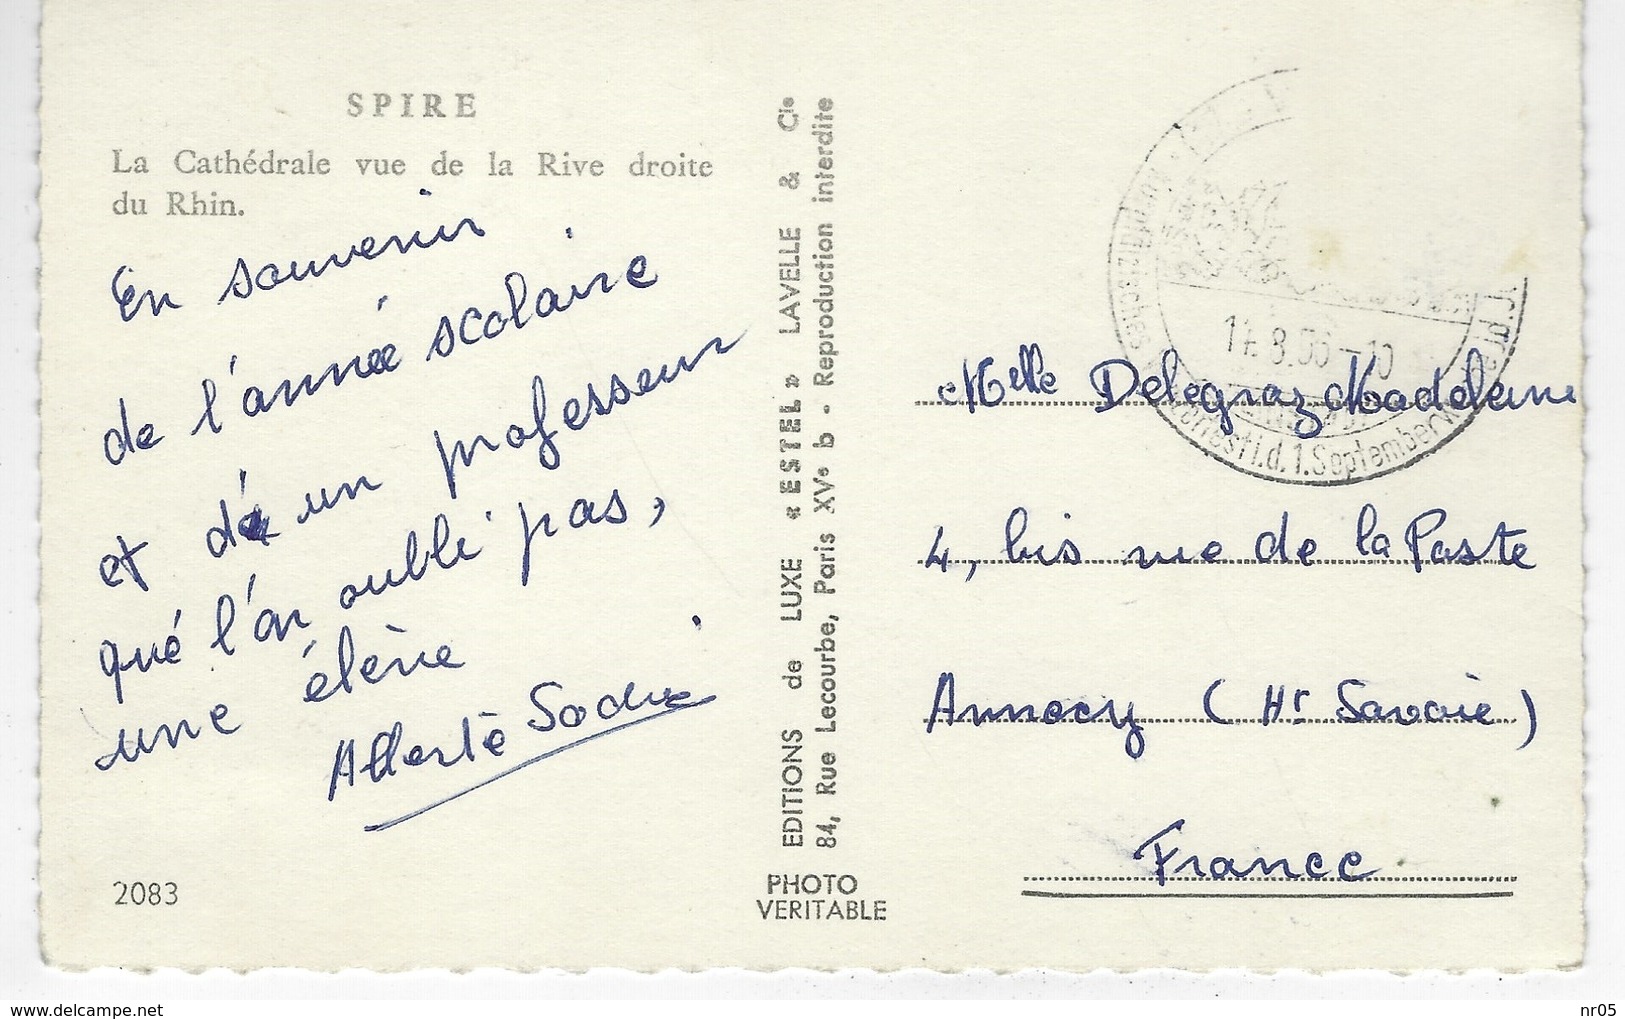 SPIRE
La Cathédrale vue de la Rive droite
du Rhin.
En souvenir
de l'année scolaire
et de un professeur
qué l'on oubli pas,
une élève
2083
EDITIONS de LUXE « ESTEL » LAVELLE & Cie
84, Rue Lecourbe, Paris XVe b - Reproduction interdite
PHOTO
VERITABLE
14.8.56-10
i.d.1.Septemberw
Melle Delegraz Madeleine
4, bis rue de la Poste
Annecy (Hte Savoie)
France
delcampe.net
nr05